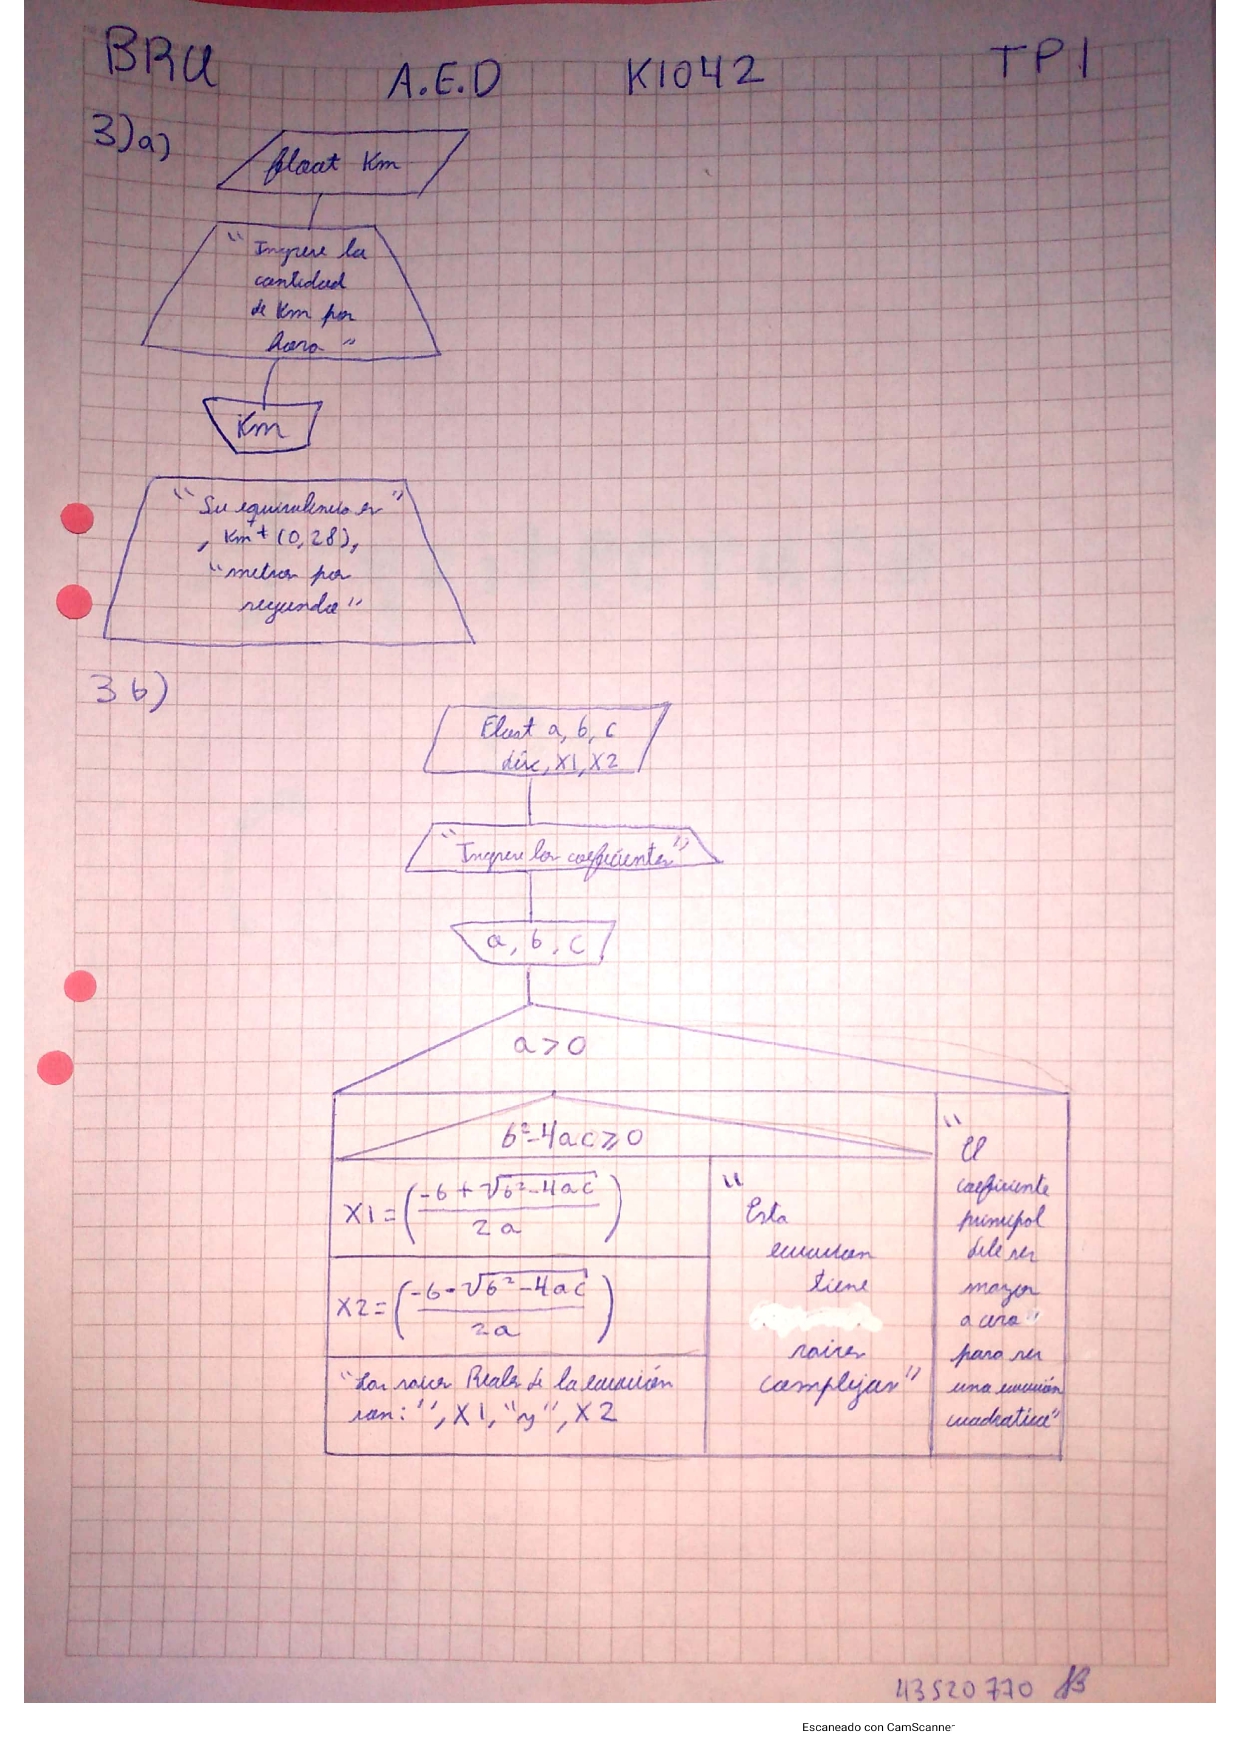 BRU A.E.D K1042 TP1
3)a)
float Km
"Ingrese la
cantidad
de Km por
hora"
Km
"Su equivalencia es"
, Km * (0,28),
"metros por
segundo"
3 b)
Float a, b, c
disc, X1, X2
"Ingrese los coeficientes"
a, b, c
a > 0
b²-4ac ⩾ 0
X1 = (-b + √b²-4ac / 2a)
X2 = (-b - √b²-4ac / 2a)
"Las raices Reales de la ecuación
son: ", X1, "y", X2
"
Esta
ecuacion
tiene
raices
complejas"
"
El
coeficiente
principal
debe ser
mayor
a cero"
para ser
una ecuación
cuadratica"
43520770
Escaneado con CamScanner